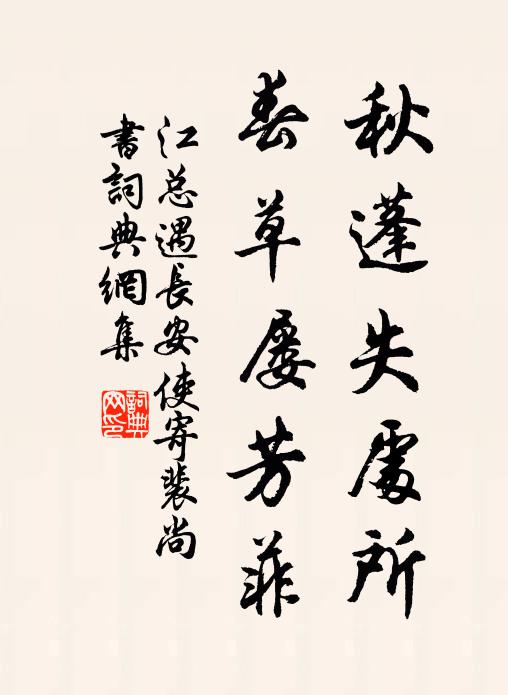 秋蓬失處所
春草屢芳菲
江总遇長安使寄裴尚
書詞典網集
詞典
网印